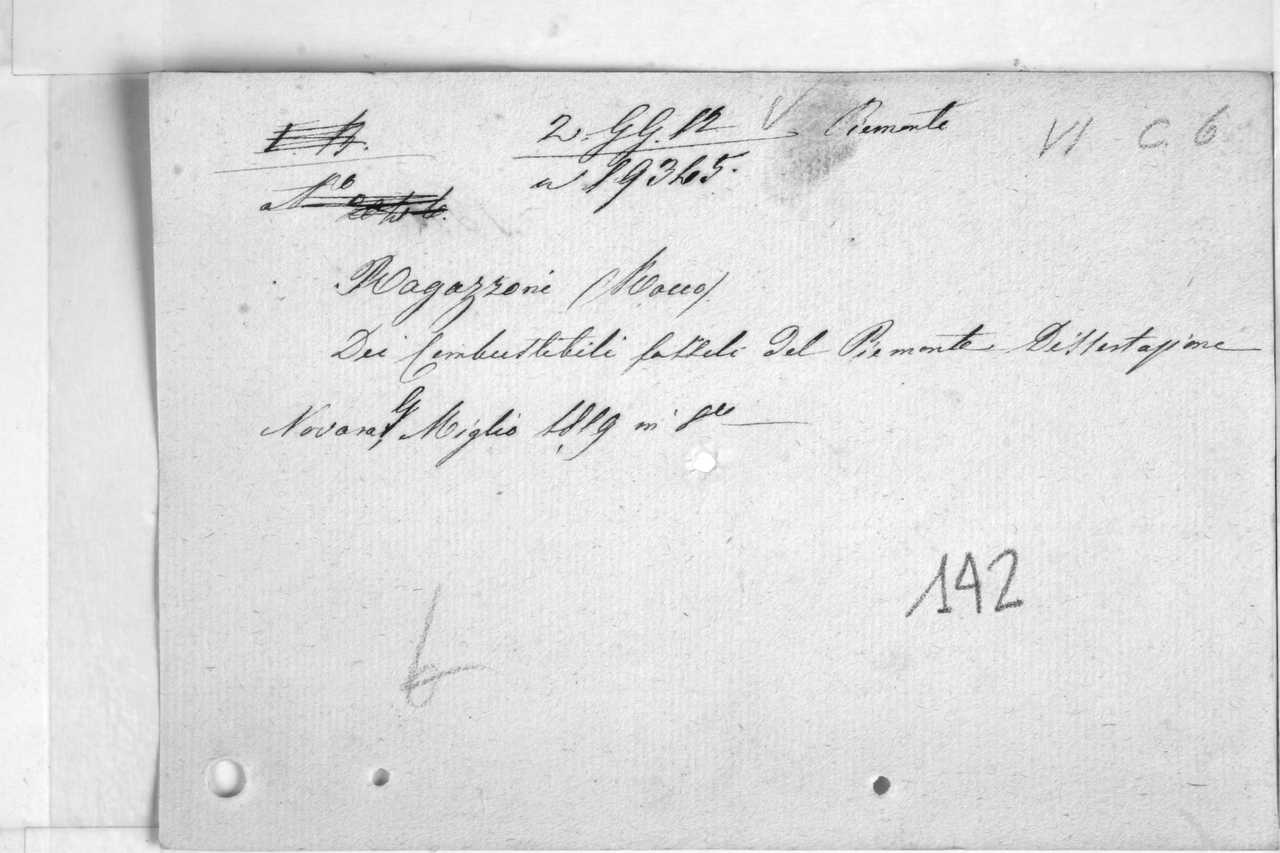 2. GG. 12 V Piemonte VI C. 6
N° n 19365.
Ragazzoni (Rocco)
Dei Combustibili fossili del Piemonte Dissertazione
Novara, G Miglio 1819 in 8vo
142